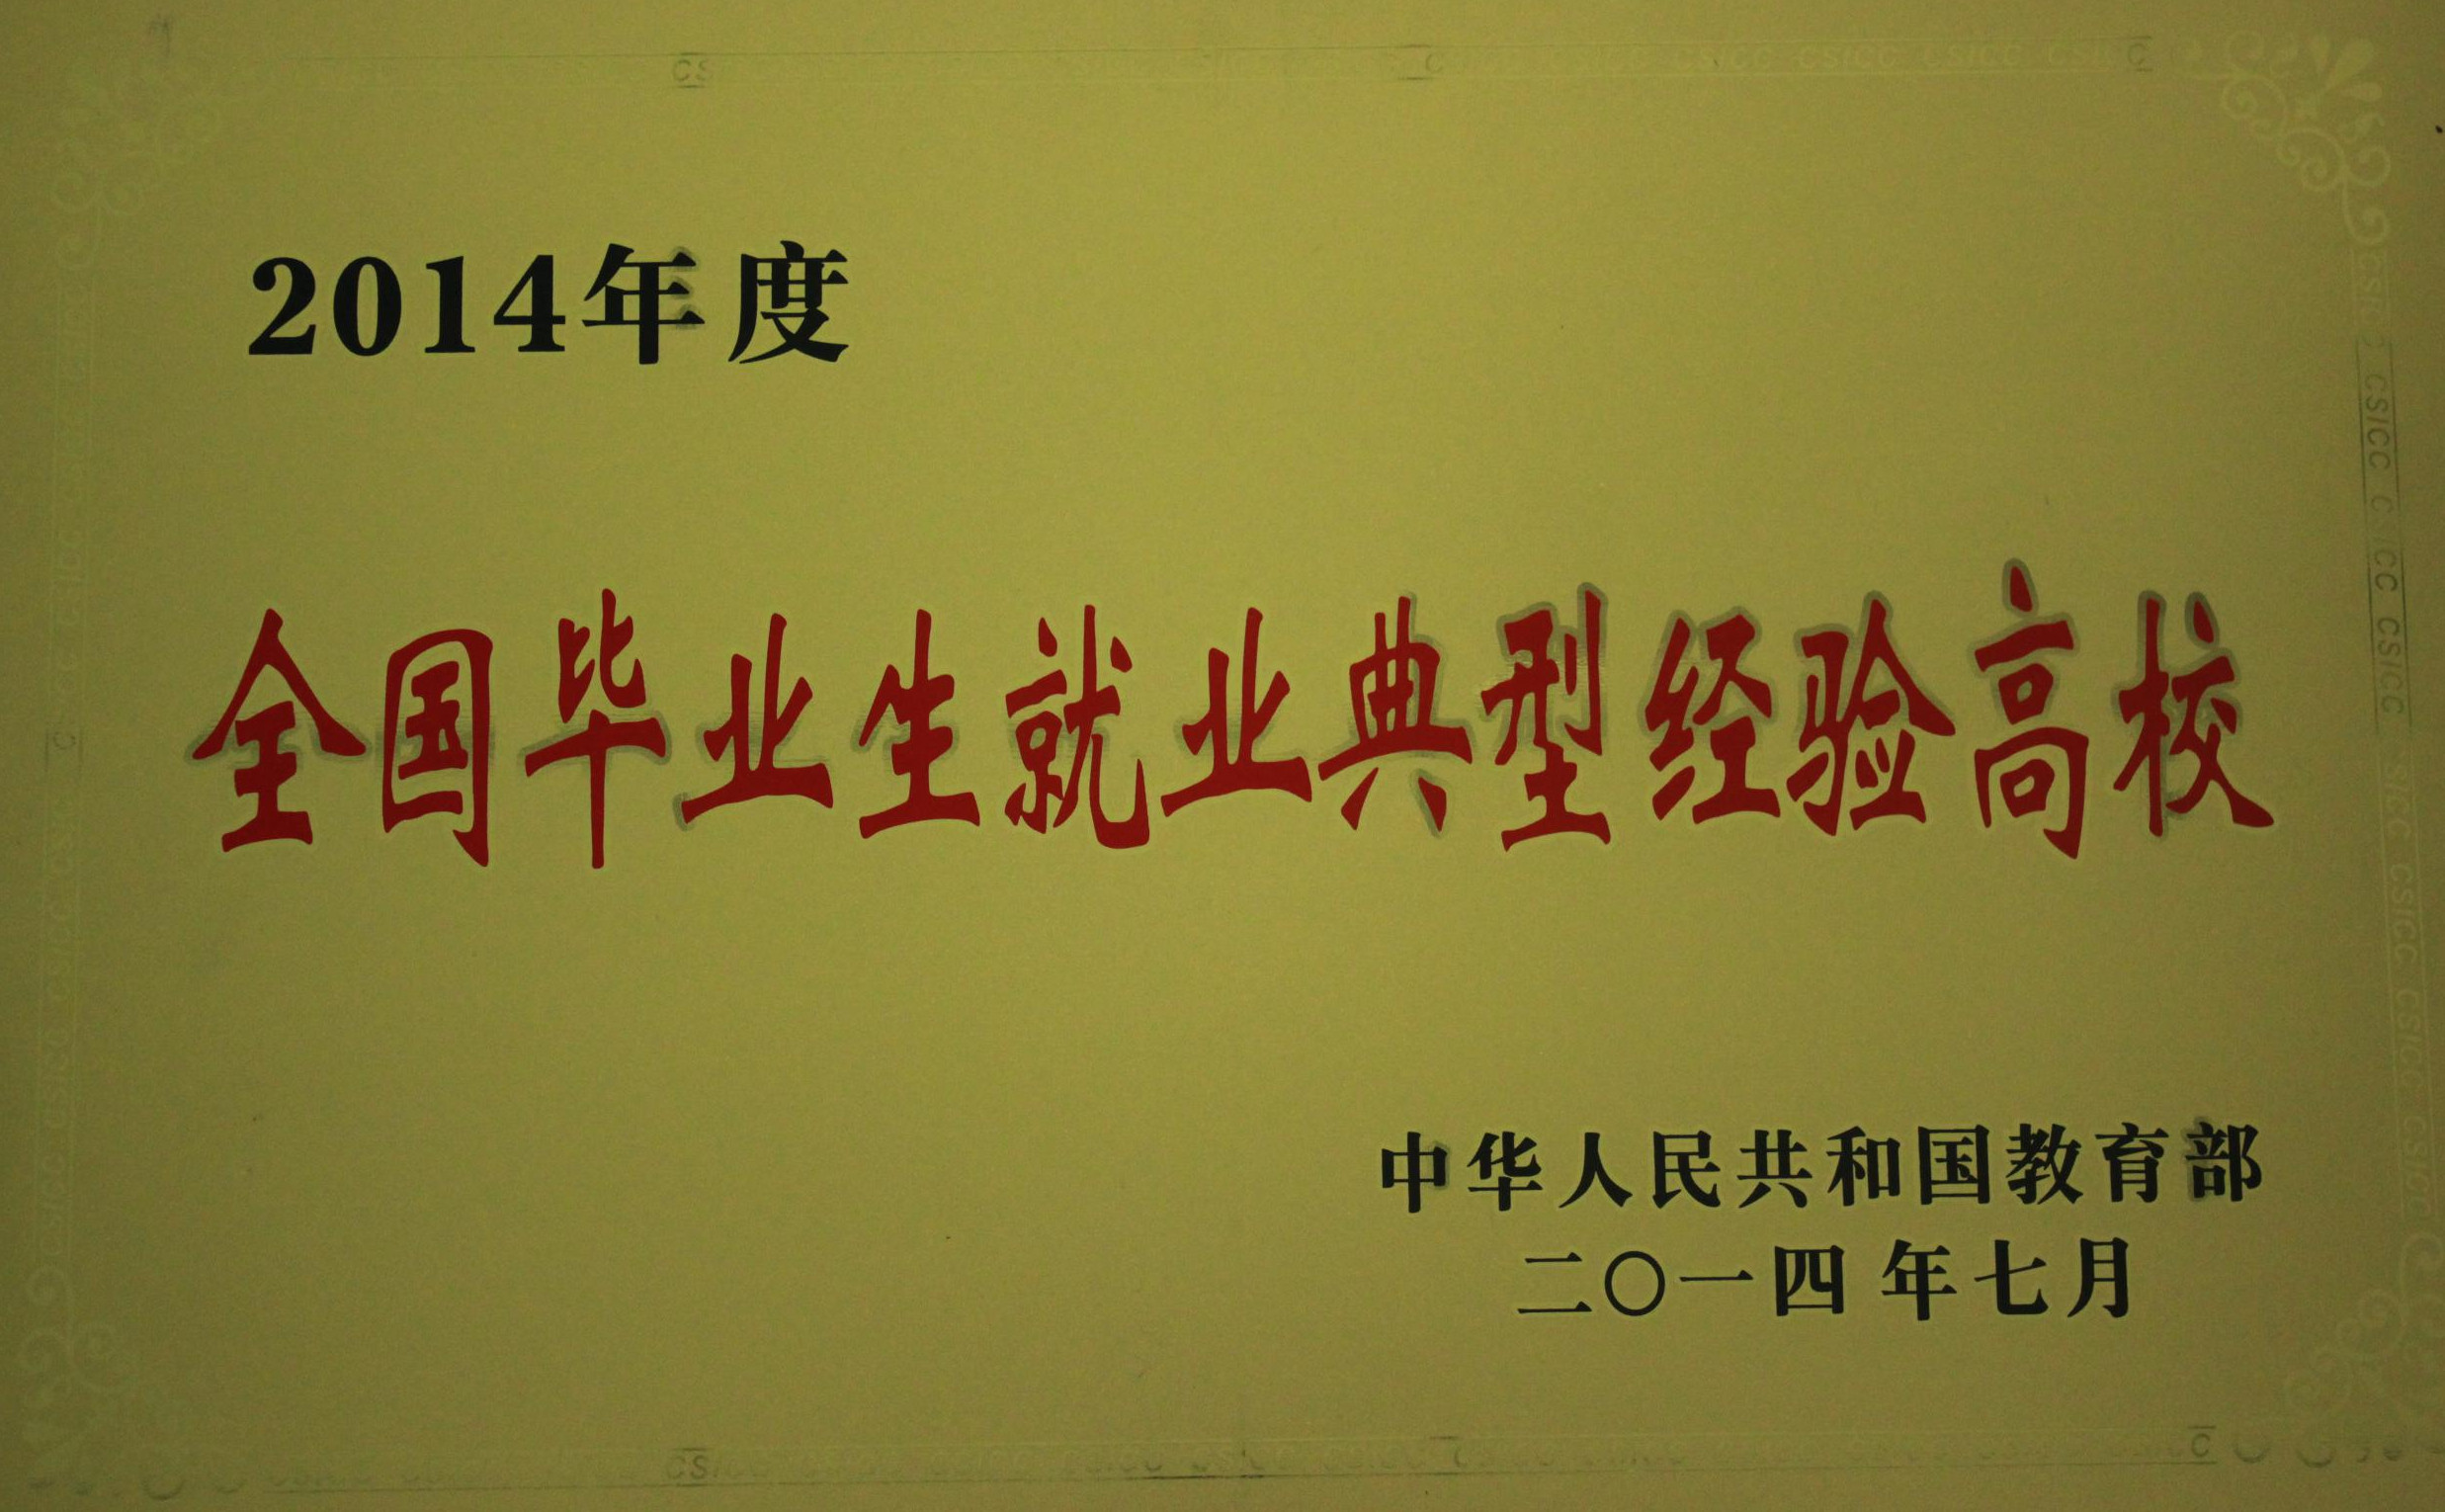 2014年度
全国毕业生就业典型经验高校
中华人民共和国教育部
二〇一四年七月
CSICC